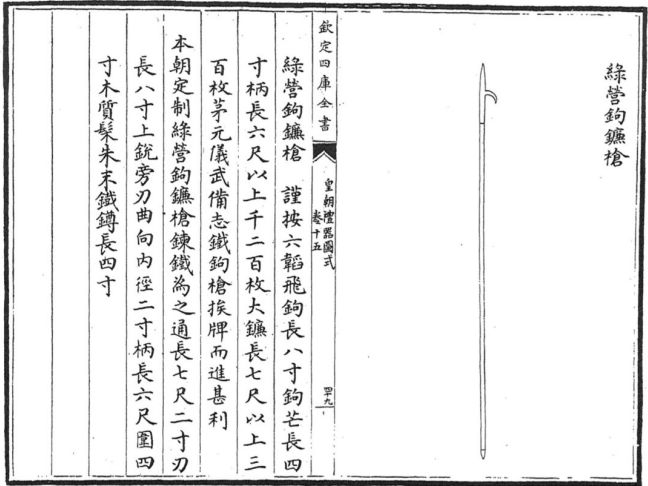 綠營鉤鐮槍
欽定四庫全書
皇朝禮器圖式
卷十五
四十九
綠營鉤鐮槍 謹按六韜飛鉤長八寸鉤芒長四
寸柄長六尺以上千二百枚大鐮長七尺以上三
百枚茅元儀武備志鐵鉤槍挨牌而進甚利
本朝定制綠營鉤鐮槍鍊鐵為之通長七尺二寸刃
長八寸上銳旁刃曲向內徑二寸柄長六尺圍四
寸木質髹朱末鐵鐏長四寸